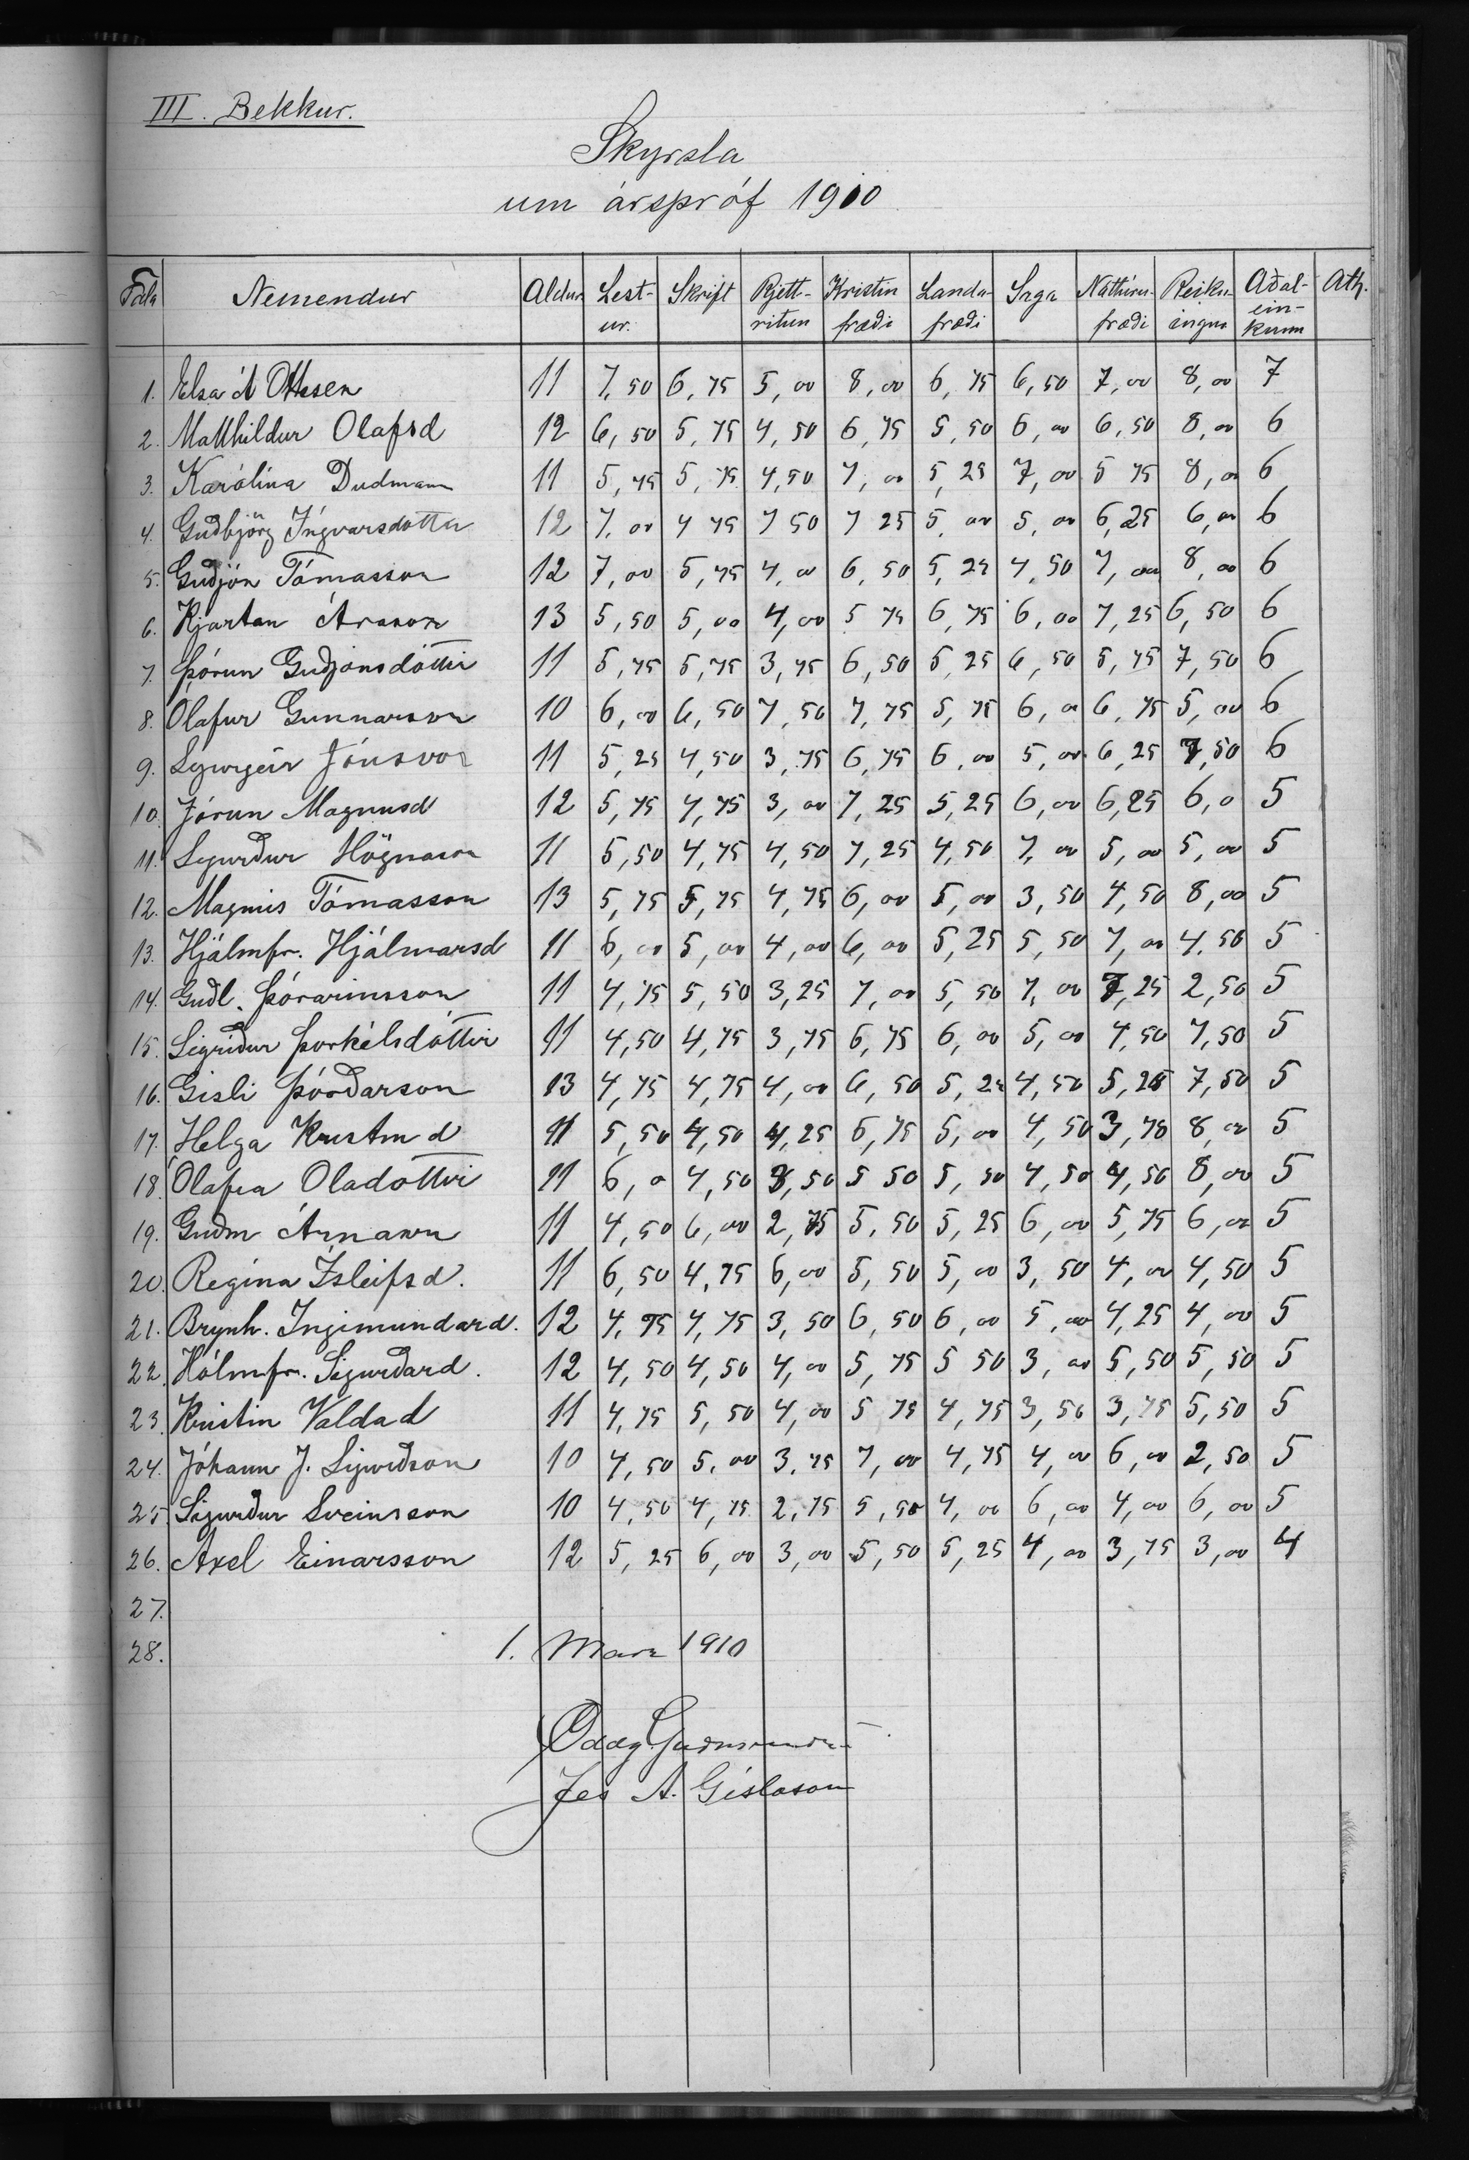 III. Bekkur.
Skyrsla
um árspróf 1910
Tala Nemendur Aldur Lestur. Skrift Rjettritun Kristinfræði Landafræði Saga Náttúrufræði Reikningur Aðaleinkunn Ath.
1. Elsa Ottesen 11 7,50 6,75 5,00 8,00 6,75 6,50 7,00 8,00 7
2. Matthildur Olafsd 12 6,50 5,75 4,50 6,75 5,50 6,00 6,50 8,00 6
3. Karólína Dudmann 11 5,75 5,75 4,50 7,00 5,25 7,00 5 75 8,00 6
4. Guðbjörg Ingvarsdottir 12 7,00 4 75 7 50 7 25 5,00 5,00 6,25 6,00 6
5. Guðjón Tómasson 12 7,00 5,75 4,00 6,50 5,25 4,50 7,00 8,00 6
6. Kjartan Árason 13 5,50 5,00 4,00 5 75 6,75 6,00 7,25 6,50 6
7. Þórun Guðjónsdóttir 11 5,75 5,75 3,75 6,50 5,25 6,50 5,75 7,50 6
8. Ólafur Gunnarson 10 6,00 6,50 7,50 7,75 5,75 6,00 6,75 5,00 6
9. Sigurgeir Jónsson 11 5,25 4,50 3,75 6,75 6,00 5,00 6,25 7,50 6
10. Jórun Magnusd 12 5,75 4,75 3,00 7,25 5,25 6,00 6,25 6,0 5
11. Sigurður Högnason 11 5,50 4,75 4,50 7,25 4,50 7,00 5,00 5,00 5
12. Magnús Tómasson 13 5,75 5,75 4,75 6,00 5,00 3,50 4,50 8,00 5
13. Hjálmfr. Hjálmarsd 11 6,00 5,00 4,00 6,00 5,25 5,50 7,00 4,50 5
14. Guðl. Þórarinsson 11 4,75 5,50 3,25 7,00 5,50 7,00 7,25 2,50 5
15. Sigríður Þorkelsdóttir 11 4,50 4,75 3,75 6,75 6,00 5,00 4,50 7,50 5
16. Gisli Þórðarson 13 4,75 4,75 4,00 6,50 5,25 4,50 5,25 7,50 5
17. Helga Kristmd 11 5,50 4,50 4,25 6,75 5,00 4,50 3,75 8,00 5
18. Ólafia Oladottir 11 6,0 4,50 3,50 5 50 5,50 4,50 4,50 8,00 5
19. Guðm Árnason 11 4,50 6,00 2,75 5,50 5,25 6,00 5,75 6,00 5
20. Regina Ísleifsd. 11 6,50 4,75 6,00 5,50 5,00 3,50 4,00 4,50 5
21. Brynh. Ingimundard. 12 4,75 4,75 3,50 6,50 6,00 5,00 4,25 4,00 5
22. Hólmfr. Sigurðard. 12 4,50 4,50 4,00 5,75 5 50 3,00 5,50 5,50 5
23. Kristin Valdad 11 4,75 5,50 4,00 5,75 4,75 3,50 3,75 5,50 5
24. Jóhann J. Sigurðson 10 4,50 5,00 3,75 7,00 4,75 4,00 6,00 2,50 5
25. Sigurður Sveinsson 10 4,50 4,75 2,75 5,50 4,00 6,00 4,00 6,00 5
26. Axel Einarsson 12 5,25 6,00 3,00 5,50 5,25 4,00 3,75 3,00 4
27.
28. 1. Marz 1910
Oddg. Guðmunds
Jes A. Gíslason